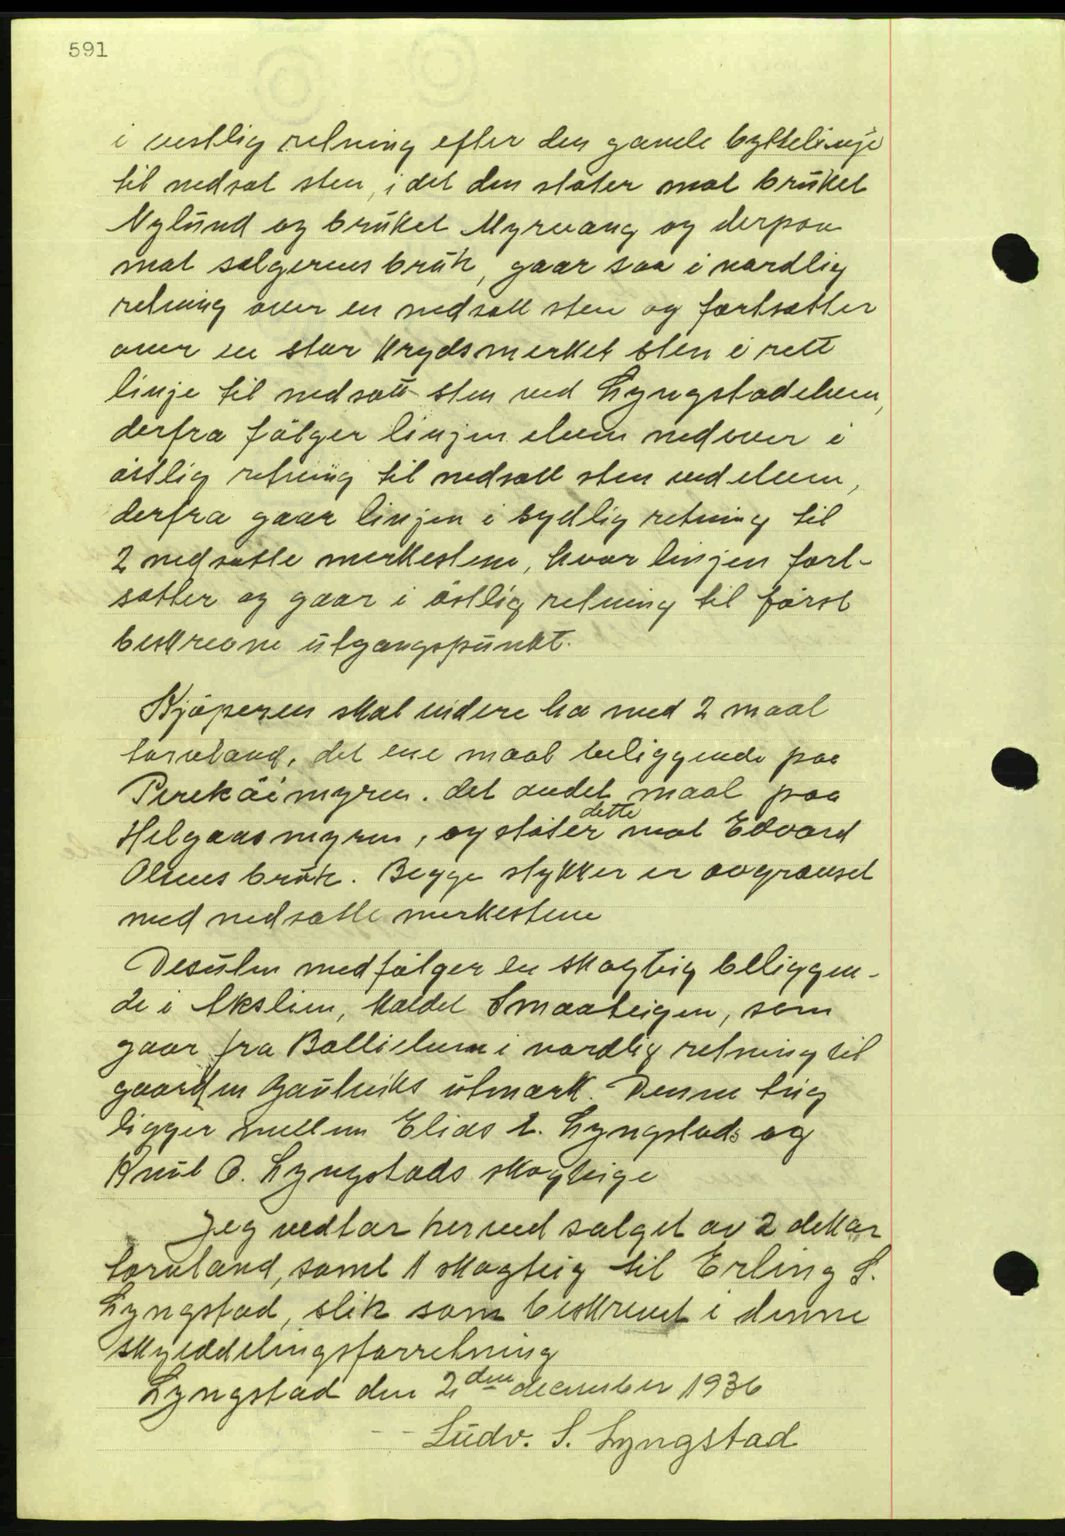 591
i vestlig retning efter den gamle byttelinje
til nedsat sten, i det den støter mot bruket
Nylund og bruket Myrvang og derpaa
mot sælgerens bruk, gaar saa i nordlig
retning over en nedsatt sten og fortsætter
over en stor krydsmerket sten i rett
linje til nedsatt sten ved Lyngstadelven,
derfra følger linjen elven nedover i
østlig retning til nedsatt sten ved elven,
derfra gaar linjen i sydlig retning til
2 nedsatte merkestene, hvor linjen fort-
sætter og gaar i østlig retning til først
beskrevne utgangspunkt.
Kjøperen skal videre ha med 2 maal
torvland, det ene maal beliggende paa
myren. det andet maal paa
Helgaasmyren, og støter dette mot Edvard
Olsens bruk. Begge stykker er avgrænset
med nedsatte merkestene
Desuten medfølger en skogteig beliggen-
de i Akslien, kaldet Smaateigen, som
gaar fra i nordlig retning til
gaarden Gautviks utmark. Denne teig
ligger mellem Elias L. Lyngstads og
Knut O. Lyngstads skogteige
Jeg vedtar herved salget av 2 dekar
torvland, samt 1 skogteig til Erling S.
Lyngstad, slik som beskrevet i denne
skylddelingsforretning
Lyngstad den 2den december 1936
Ludv. S. Lyngstad